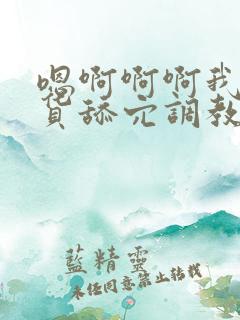 嗯啊啊啊我
舔穴調教
藍精靈
未经同意禁止转载